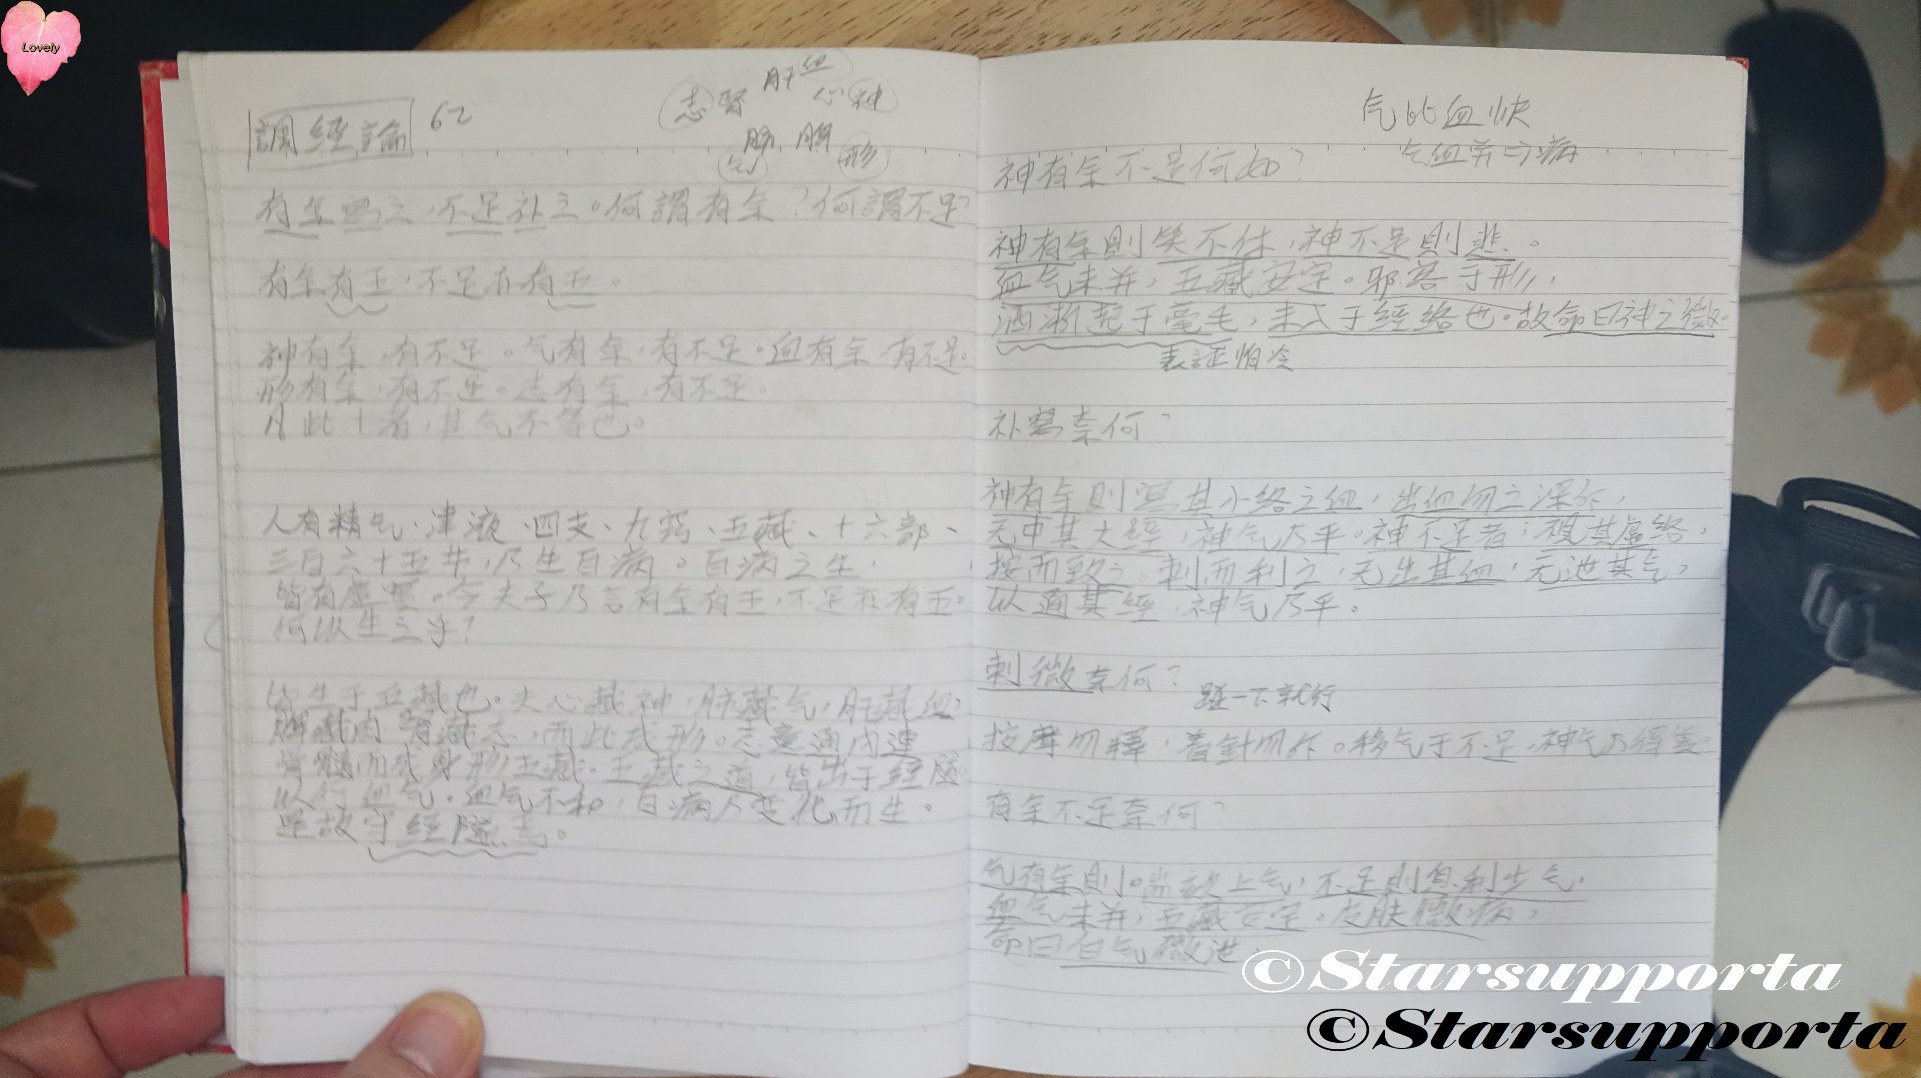 Lovely
調經論 62
肝 血
志 腎 心 神
肺 脾
气 形
有余寫之，不足补之。何謂有余？何謂不足？
有余有五，不足亦有五。
神有余，有不足。气有余，有不足。血有余，有不足。
形有余，有不足。志有余，有不足。
凡此十者，其气不等也。
人有精气、津液、四支、九窍、五藏、十六部、
三百六十五节，乃生百病。百病之生，
皆有虛實。今夫子乃言有余有五，不足亦有五。
何以生之乎？
皆生于五藏也。夫心藏神，肺藏气，肝藏血，
脾藏肉，腎藏志，而此成形。志意通，内連
骨髓而成身形五藏。五藏之道，皆出于經隧
以行血气。血气不和，百病乃变化而生。
是故守經隧焉。
气比血快
神有余不足何如？
神有余則笑不休，神不足則悲。
血气未并，五藏安定。邪客于形，
洒淅起于毫毛，未入于經络也。故命曰神之微。
表証怕冷
补寫奈何？
神有余則寫其小络之血，出血勿之深斥，
无中其大經，神气乃平。神不足者，視其虛络，
按而致之。刺而利之，无出其血，无泄其气，
以通其經，神气乃平。
刺微奈何？
碰一下就行
按摩勿釋，着針勿斥。移气于不足，神气乃得复。
有余不足奈何？
气有余則喘欬上气，不足則息利少气。
血气未并，五藏安定。皮肤微病，
命曰白气微泄
©Starsupporta
©Starsupporta